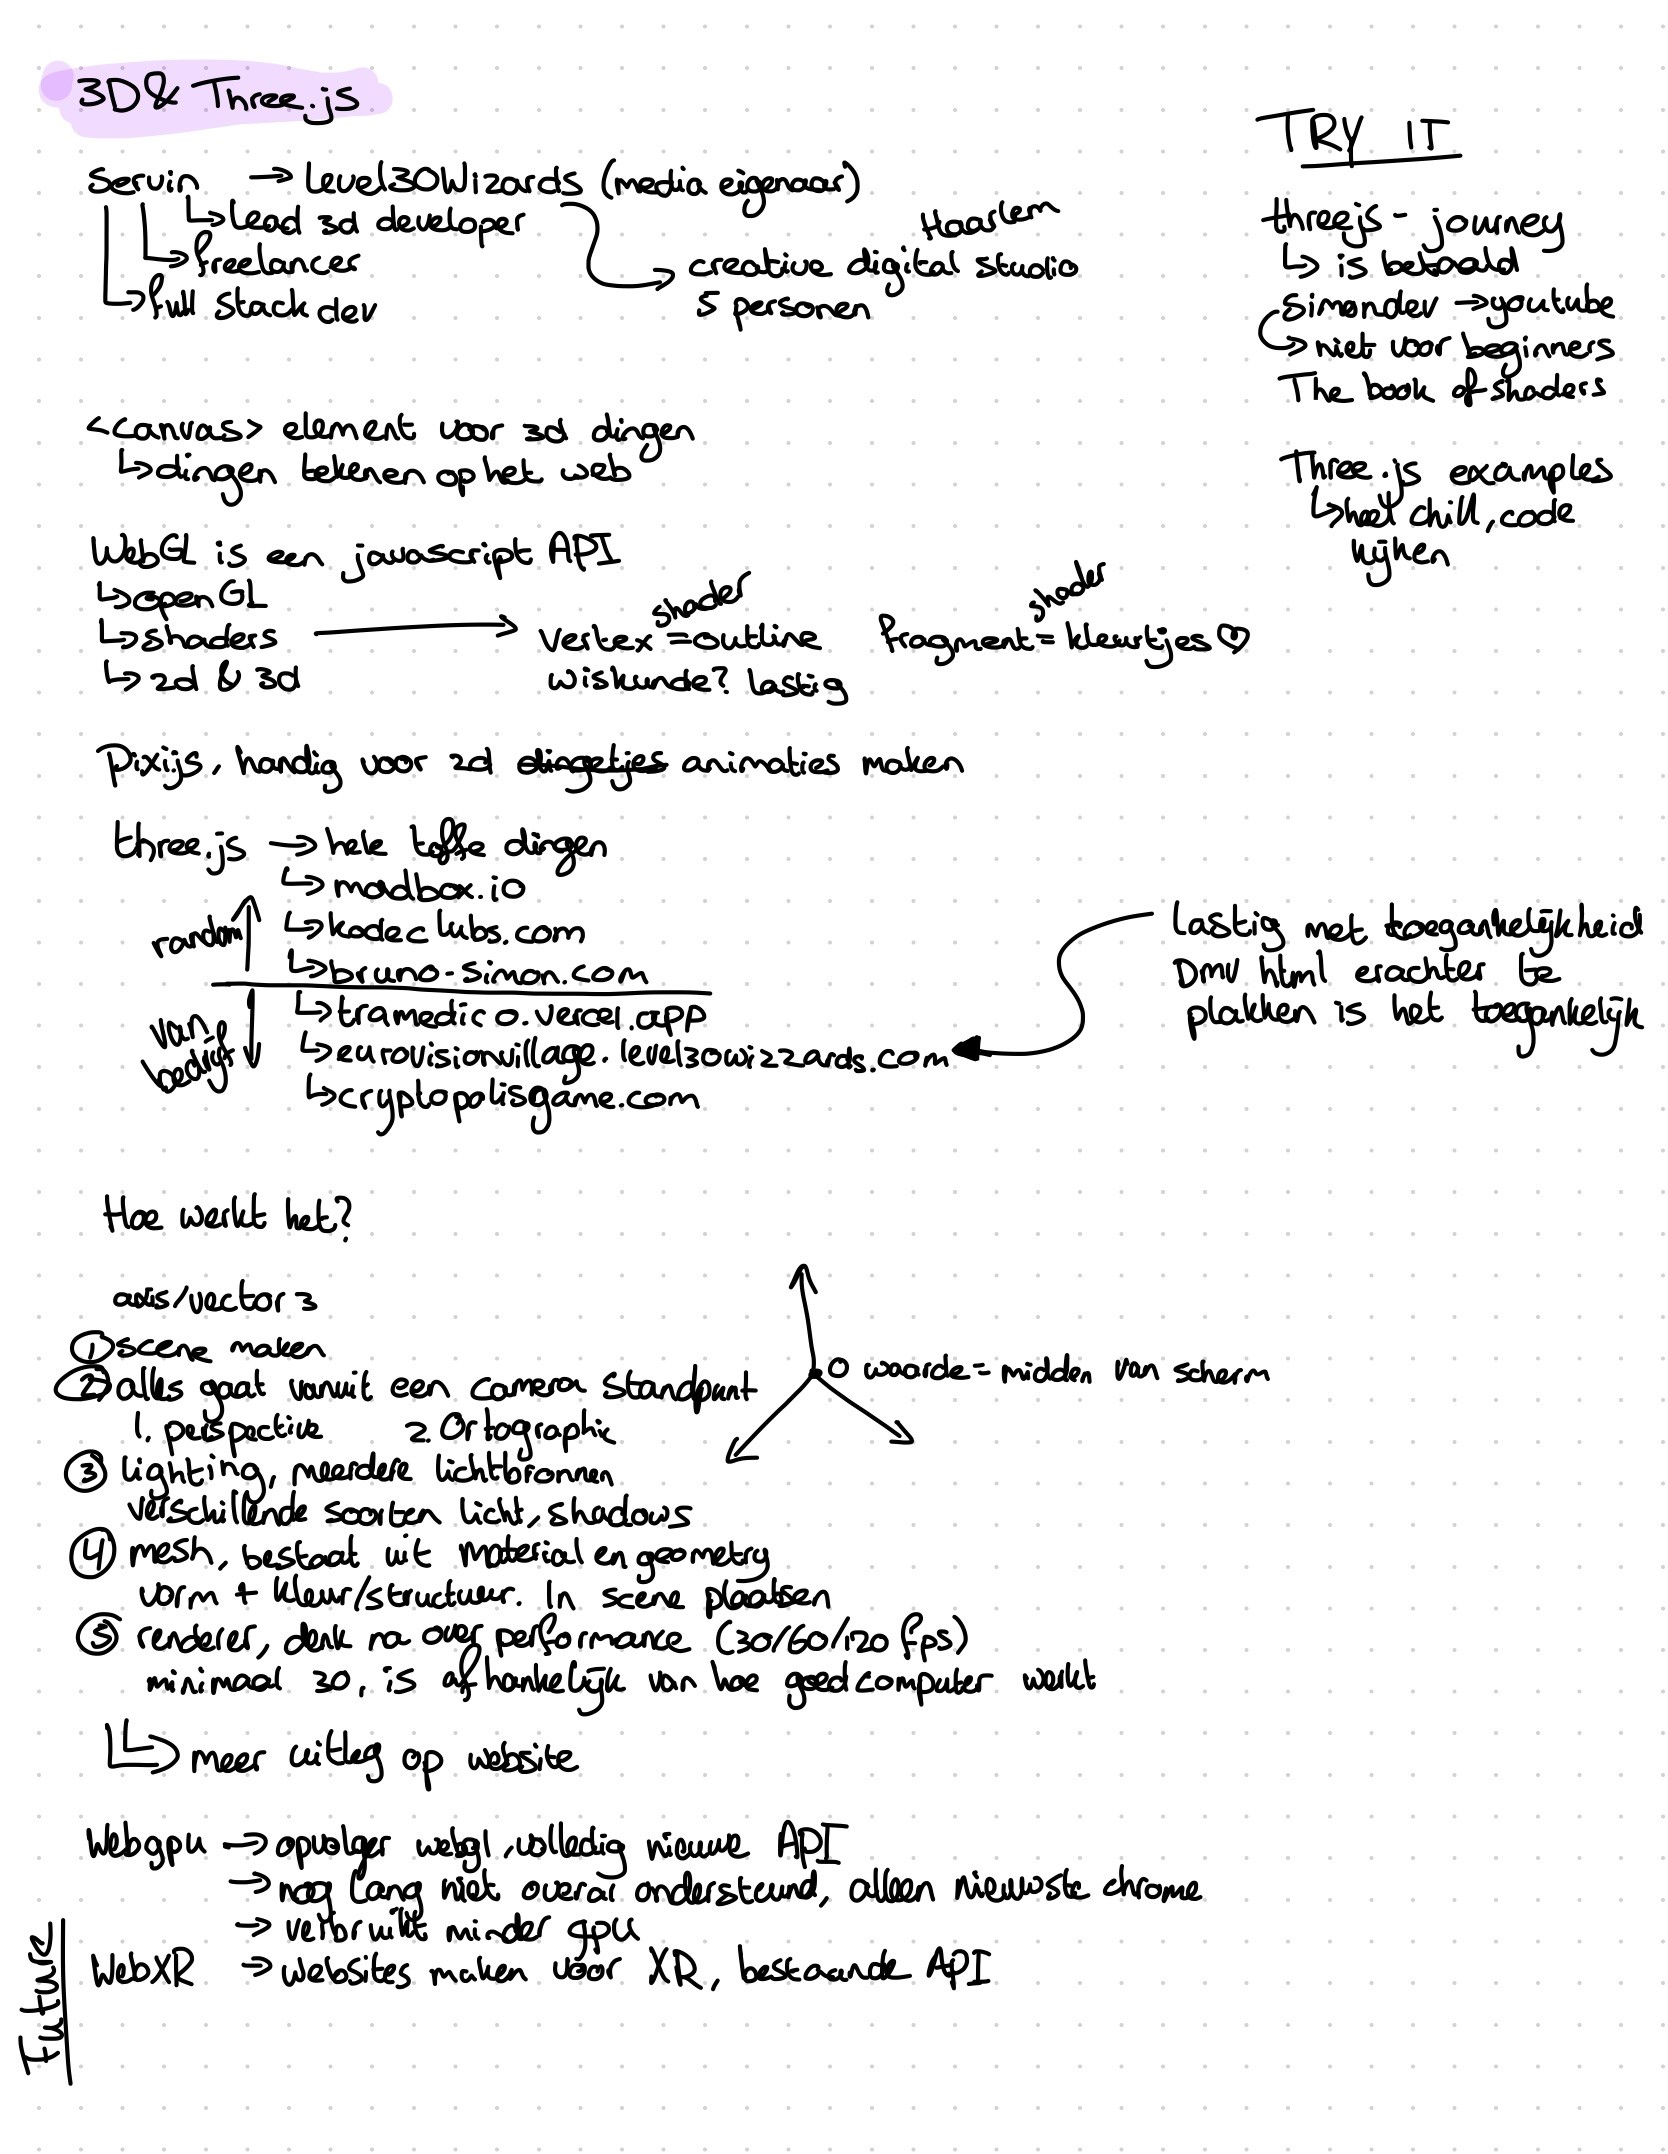 3D & Three.js
servin → Level30Wizards (media eigenaar)
↳ Lead 3d developer
↳ freelancer
↳ full stack dev
Haarlem
creative digital studio
5 personen
TRY IT
threejs - journey
↳ is betaald
simondev → youtube
↳ niet voor beginners
The book of shaders
Three.js examples
↳ heel chill, code
kijken
<canvas> element voor 3d dingen
↳ dingen tekenen op het web
WebGL is een javascript API
↳ openGL
↳ shaders →
↳ 2d & 3d
shader
Vertex = outline
wiskunde? lastig
shader
fragment = kleurtjes ♡
Pixijs, handig voor 2d dingetjes animaties maken
three.js → hele toffe dingen
↳ madbox.io
↳ kodeclubs.com
↳ bruno-simon.com
random
↳ tramedico.vercel.app
↳ eurovisionvillage.level30wizzards.com
↳ cryptopolisgame.com
van
bedrijf
lastig met toegankelijkheid
Dmv html erachter te
plakken is het toegankelijk
Hoe werkt het?
axis/vector 3
① scene maken
② alles gaat vanuit een camera standpunt
1. perspective 2. Ortographic
0 waarde = midden van scherm
③ lighting, meerdere lichtbronnen
verschillende soorten licht, shadows
④ mesh, bestaat uit material en geometry
vorm + kleur/structuur. In scene plaatsen
⑤ renderer, denk na over performance (30/60/120 fps)
minimaal 30, is afhankelijk van hoe goed computer werkt
↳ meer uitleg op website
Webgpu → opvolger webgl, volledig nieuwe API
→ nog lang niet overal ondersteund, alleen nieuwste chrome
→ verbruikt minder gpu
WebXR → websites maken voor XR, bestaande API
Future